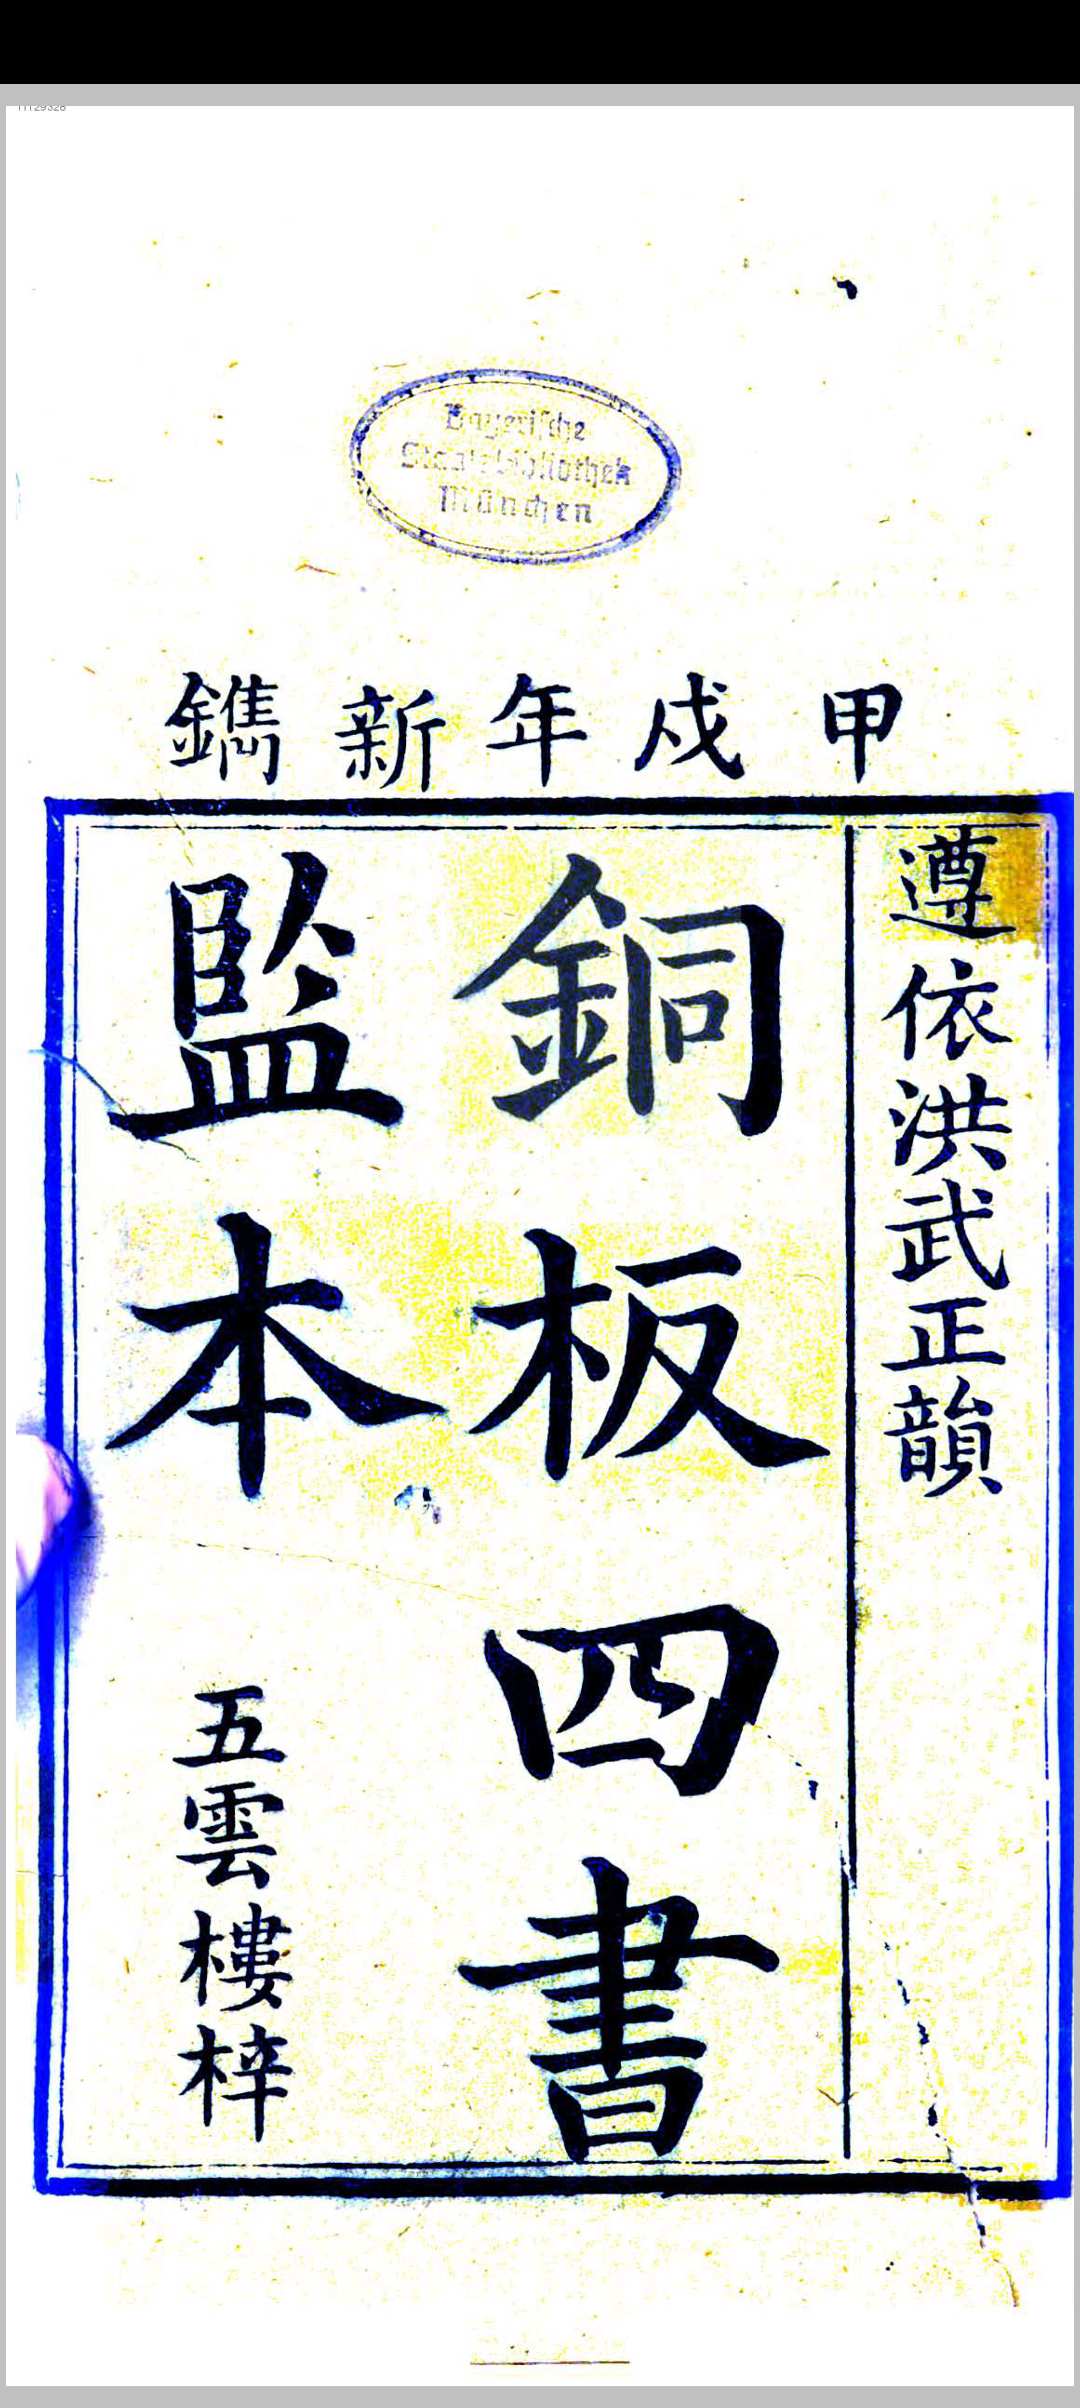 Bayerische
Staatsbibliothek
München
甲戌年新鐫
遵依洪武正韻
銅板四書
監本
五雲樓梓